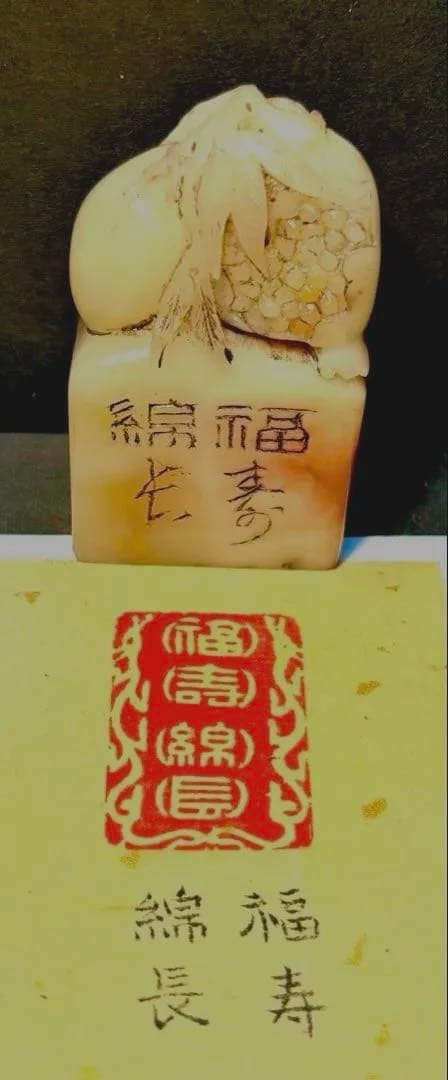 福寿
綿长
福壽綿長
福寿
綿長